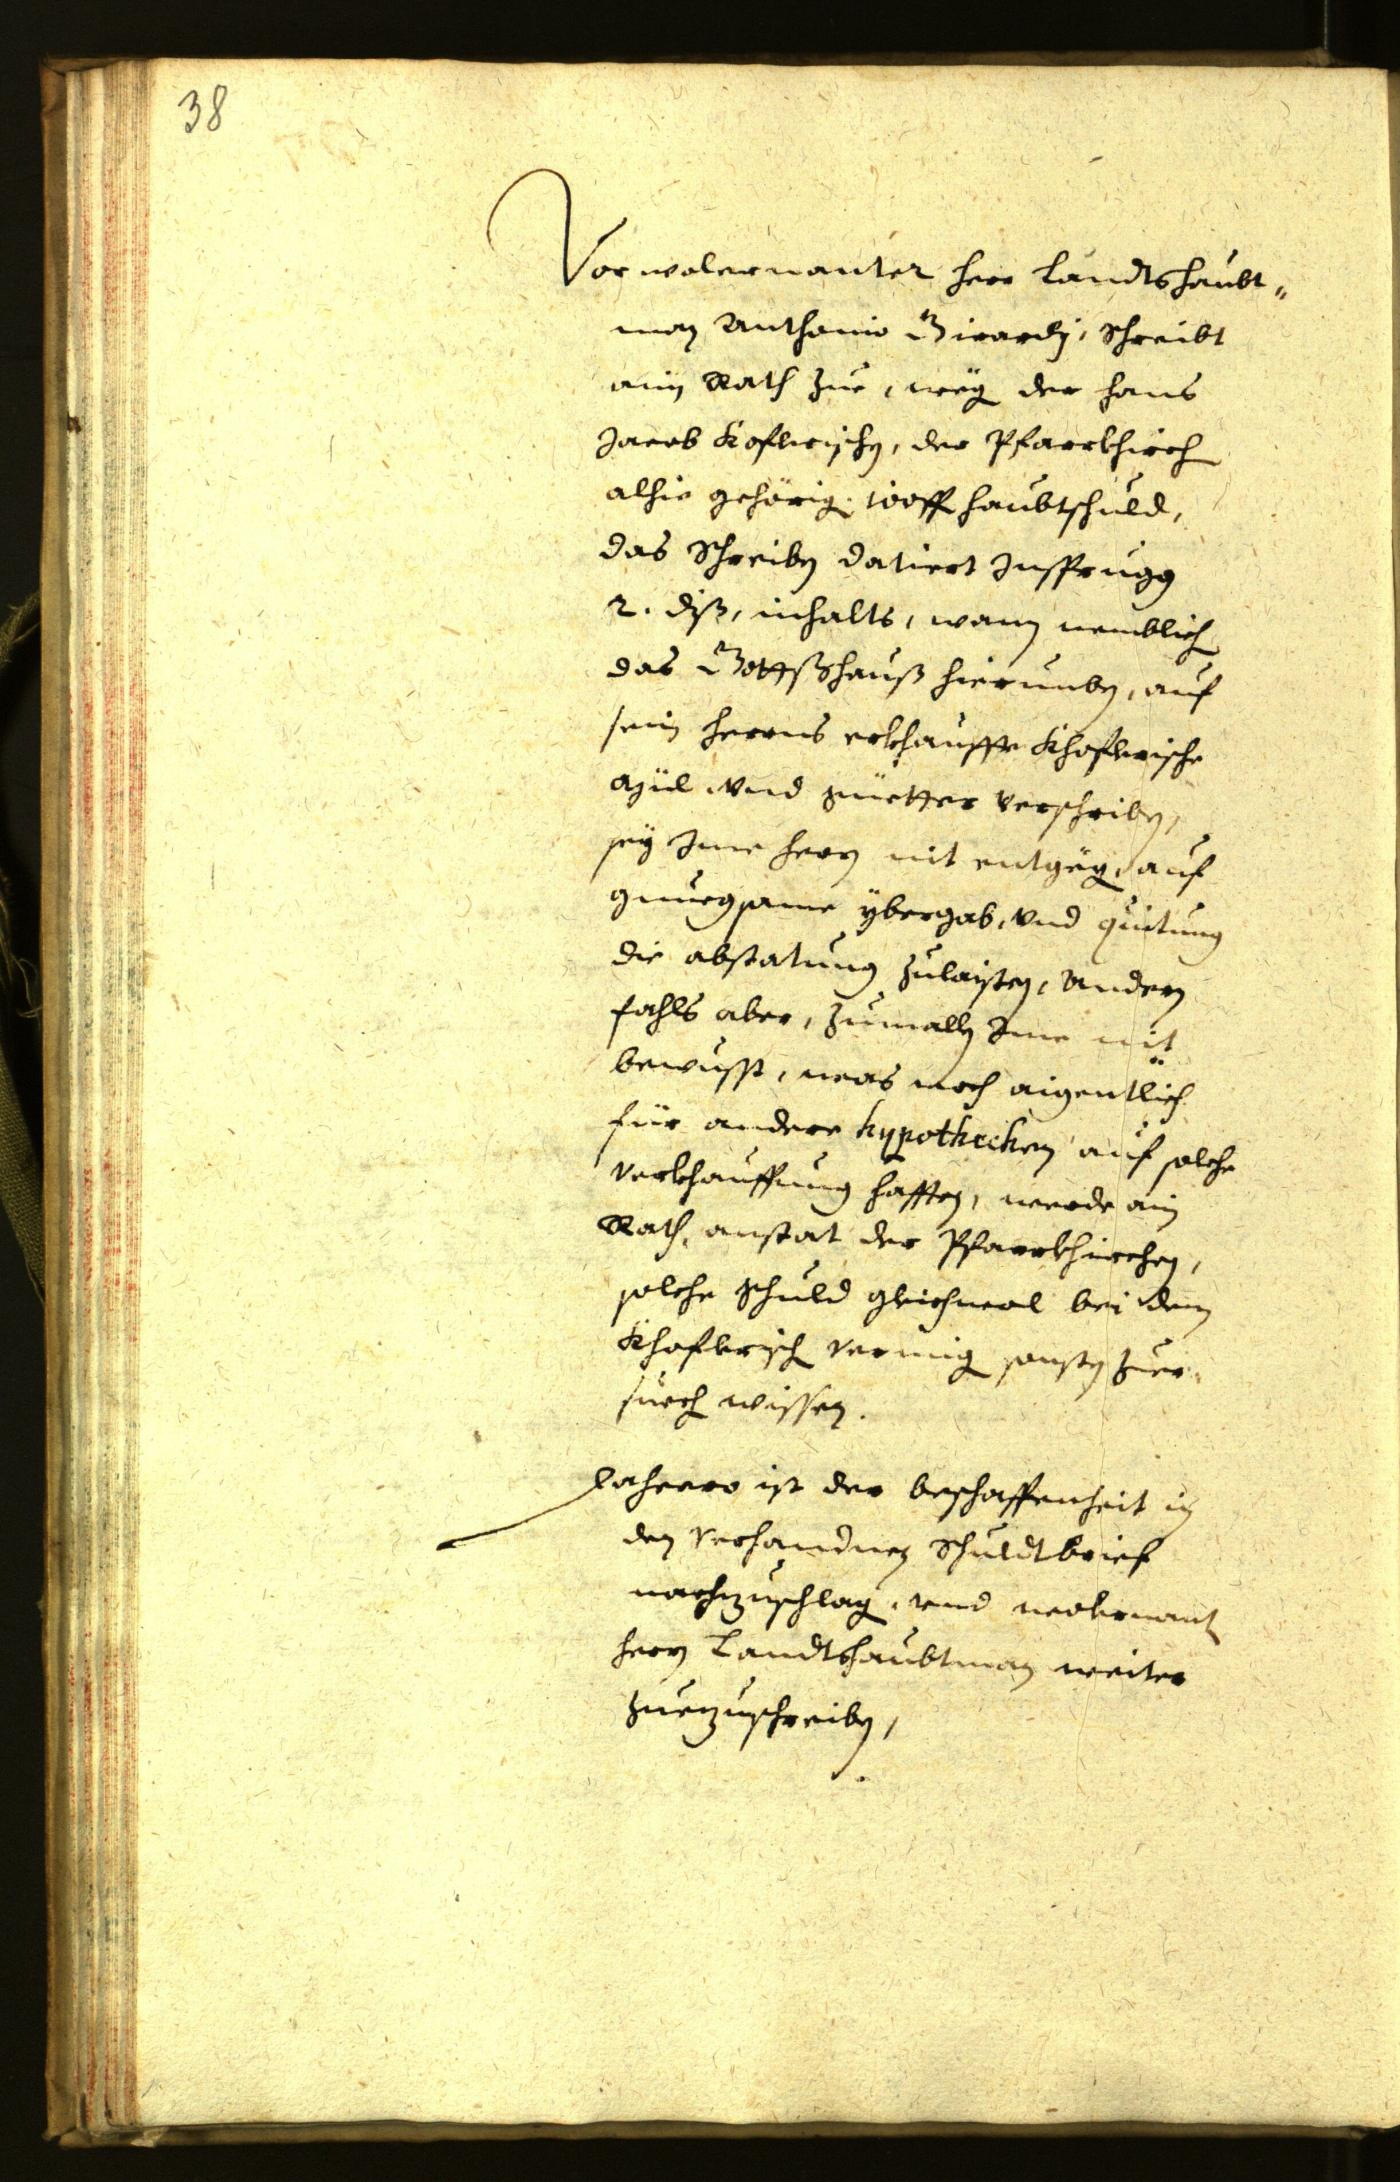 38
Vorwolernanter herr Landtshaubt„
man Anthonio Girardj, schreibt
ain Rath zue, weg der Hans
Jacob Koflerischen, der Pfarrkhirch
alhie gehörig. 100 fl haubtschuld,
das Schreiben datiert Insprugg
2. diß, inhalts, wann nemblich
das Gottßhauß hierumben, auf
sein Herrns erkhauffte Khoflerische
und güetter verschriben,
sey Ime Herrn nit entgeg, auf
gnuegsame ybergab, und quitung
die abstatung zulaisten, andern
fahls aber, zumalln Ime nit
bewusst, was noch aigentlich
für andere hypothecken auf solche
verkhauffung hafften, werde ain
Rath, anstat der Pfarrkhirchen,
solche schuld gleichwol bei dem
Khoflerisch vermig sonsten zuer„
suech wissen.
Dahero ist der beschaffenheit in
den verhandnen Schuldtbrief
nachzuschlag, und wolernantn
herrn Landtshaubtman weiter
zuezuschreiben,